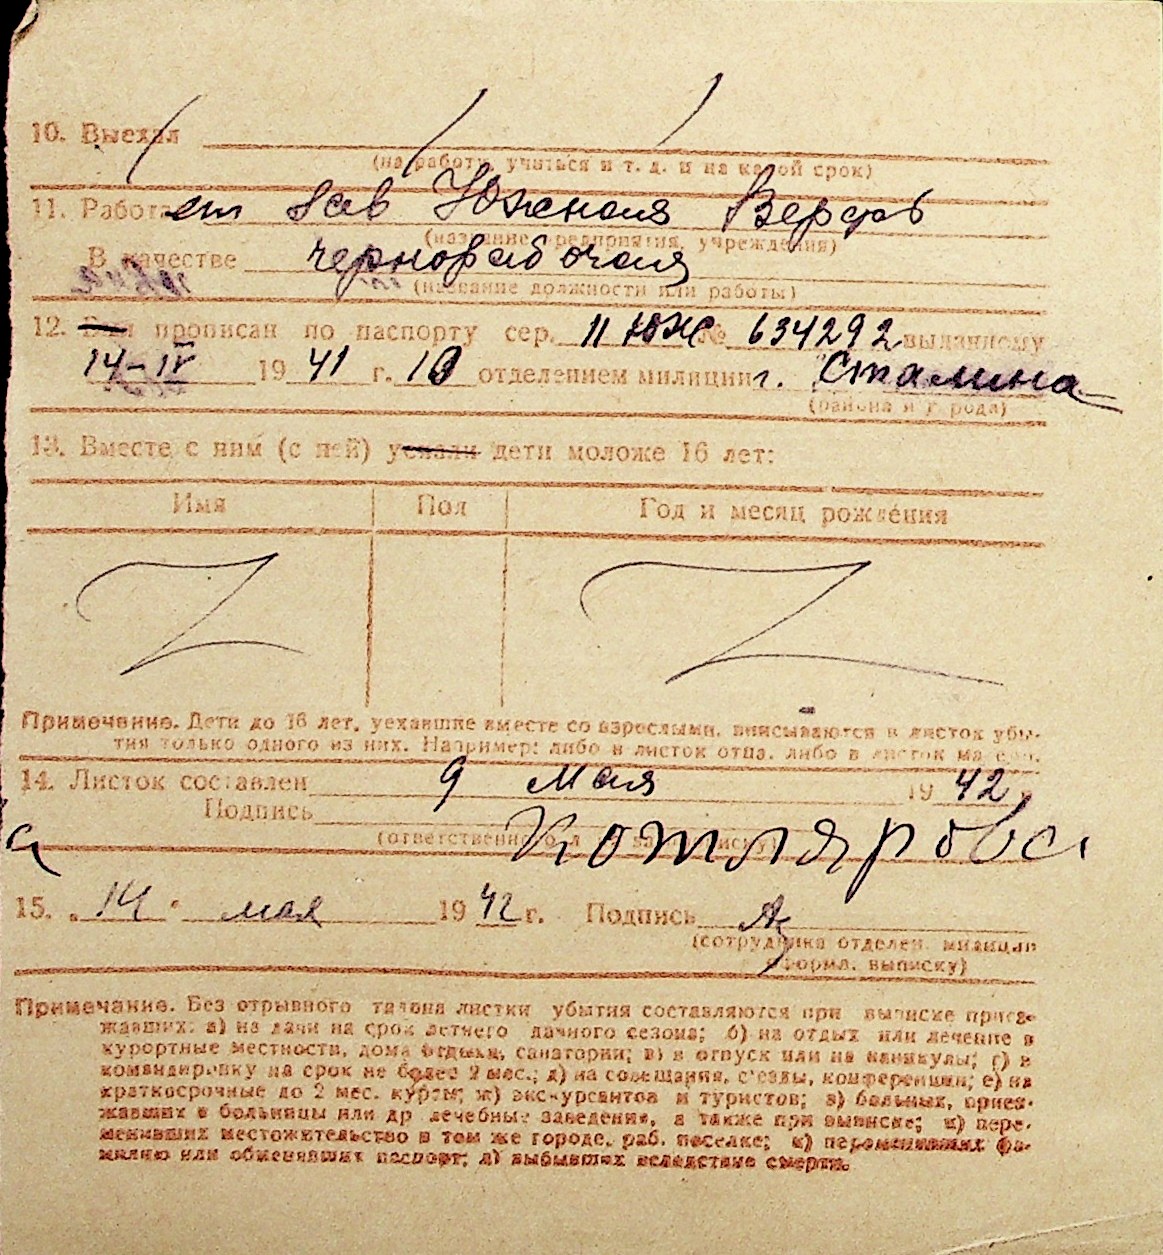 10. Выехал
(на работу, учиться и т. д. и на какой срок)
11. Работает Зав Южная Верфь
(название предприятия, учреждения)
В качестве чернорабочая
(название должности или работы)
12. Был прописан по паспорту сер. II ЮЖ № 634292 выданному
14-IV 1941 г. 10 отделением милиции г. Сталина
(района и города)
13. Вместе с ним (с ней) уехали дети моложе 16 лет:
Имя Пол Год и месяц рождения
Примечание. Дети до 16 лет, уехавшие вместе со взрослыми, вписываются в листок убы-
тия только одного из них. Например: либо в листок отца, либо в листок матери.
14. Листок составлен 9 мая 1942
Подпись Котлярова
(ответственного за прописку)
15. „14" мая 1942 г. Подпись
(сотрудника отделен. милиции
оформл. выписку)
Примечание. Без отрывного талона листки убытия составляются при выписке приез-
жавших: а) на дачи на срок летнего дачного сезона; б) на отдых или лечение в
курортные местности, дома отдыха, санатории; в) в отпуск или на каникулы; г) в
командировку на срок не более 2 мес.; д) на совещания, съезды, конференции; е) на
краткосрочные до 2 мес. курсы; ж) экскурсантов и туристов; з) больных, приез-
жавших в больницы или др лечебные заведения, а также при выписке; и) пере-
менивших местожительство в том же городе, раб. поселке; к) переменивших фа-
милию или обменявших паспорт; л) выбывших вследствие смерти.